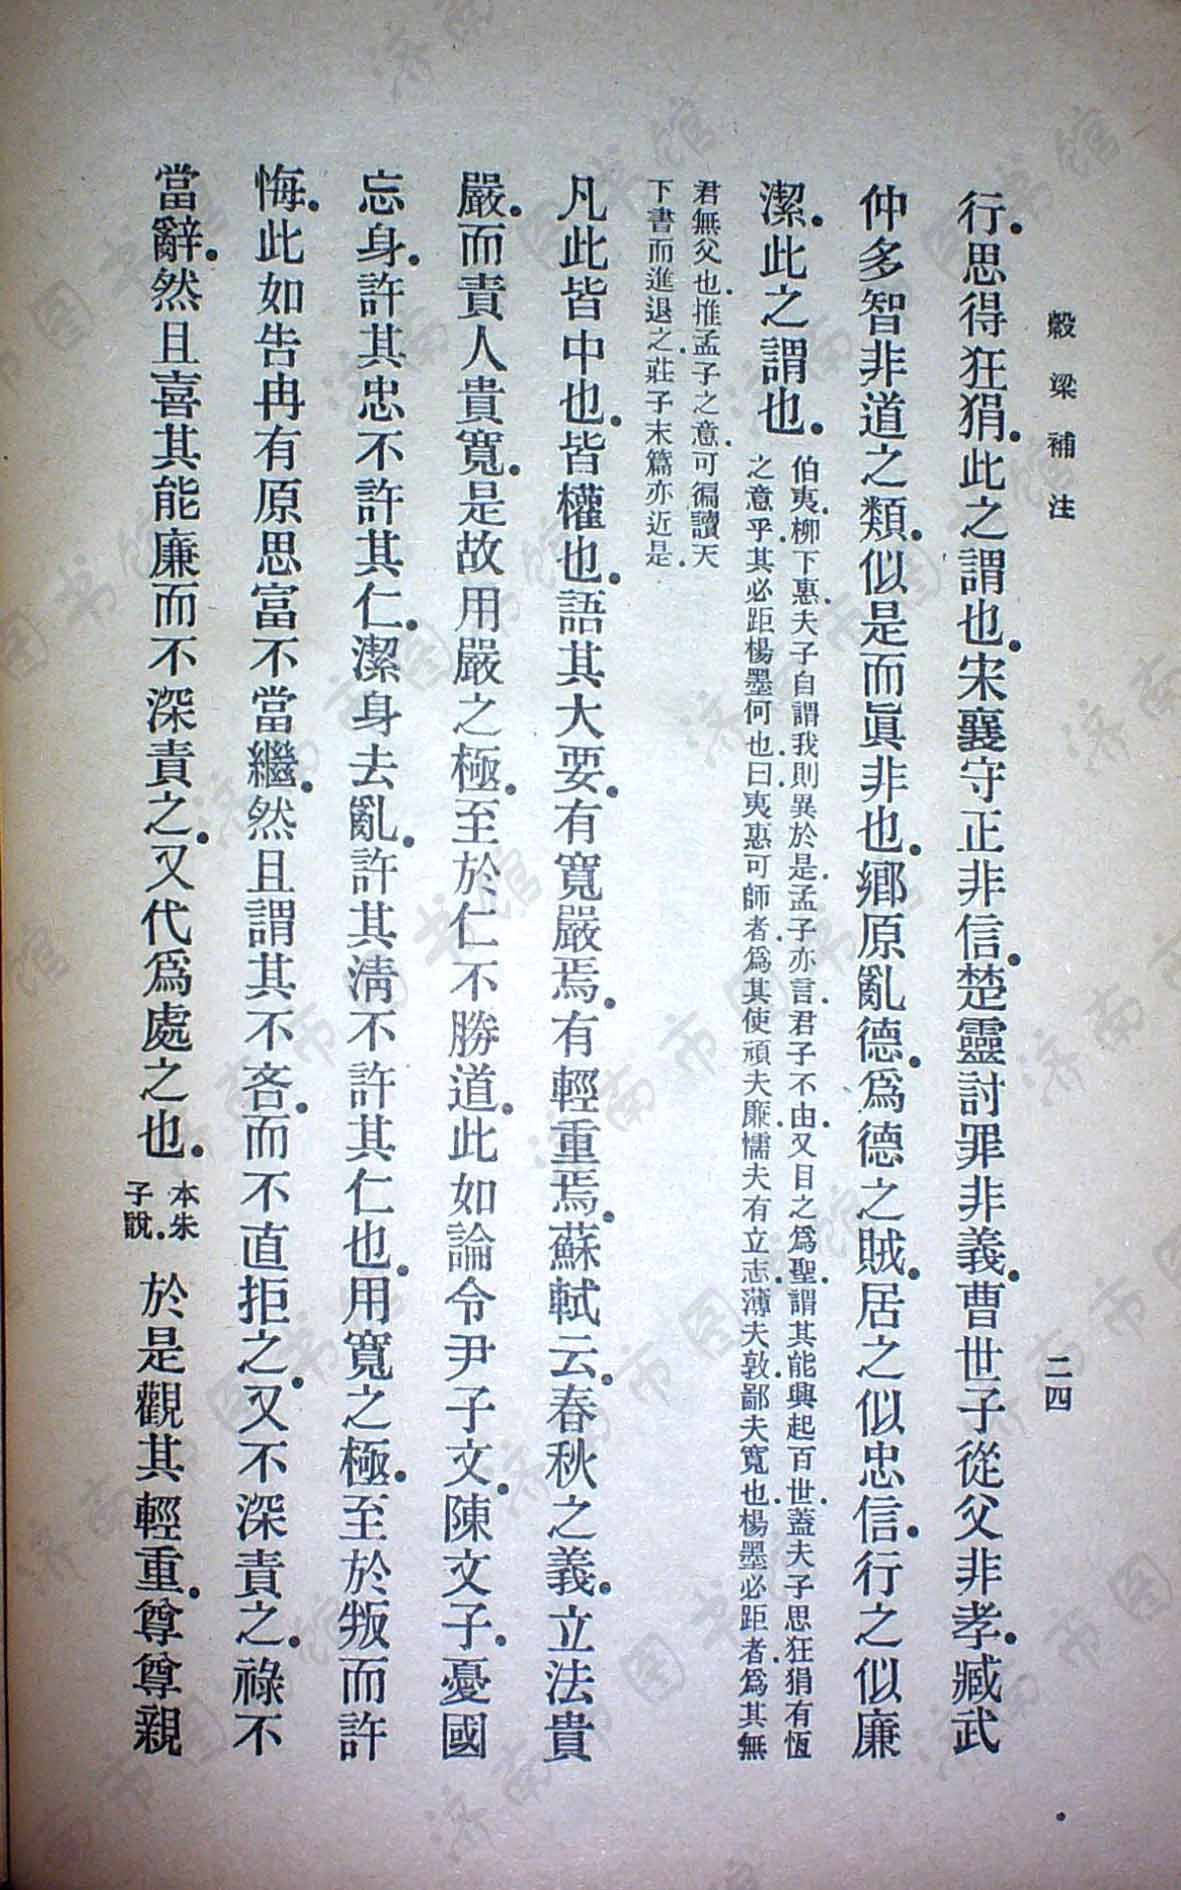 穀梁補注
二四
行。思得狂狷。此之謂也。宋襄守正非信。楚靈討罪非義。曹世子從父非孝。臧武
仲多智非道之類。似是而眞非也。鄉原亂德。爲德之賊。居之似忠信。行之似廉
潔。此之謂也。
伯夷。柳下惠。夫子自謂我則異於是。孟子亦言。君子不由。又目之爲聖。謂其能興起百世。蓋夫子思狂狷有恆
之意乎。其必距楊墨何也。曰。夷惠可師者。爲其使頑夫廉。懦夫有立志。薄夫敦。鄙夫寬也。楊墨必距者。爲其無
君無父也。推孟子之意。可徧讀天
下書而進退之。莊子末篇亦近是。
凡此皆中也。皆權也。語其大要。有寬嚴焉。有輕重焉。蘇軾云。春秋之義。立法貴
嚴。而責人貴寬。是故用嚴之極。至於仁不勝道。此如論令尹子文。陳文子。憂國
忘身。許其忠不許其仁。潔身去亂。許其淸不許其仁也。用寬之極。至於叛而許
悔。此如告冉有原思富不當繼。然且謂其不吝。而不直拒之。又不深責之。祿不
當辭。然且喜其能廉而不深責之。又代爲處之也。
本朱
子說。
於是觀其輕重。尊尊親